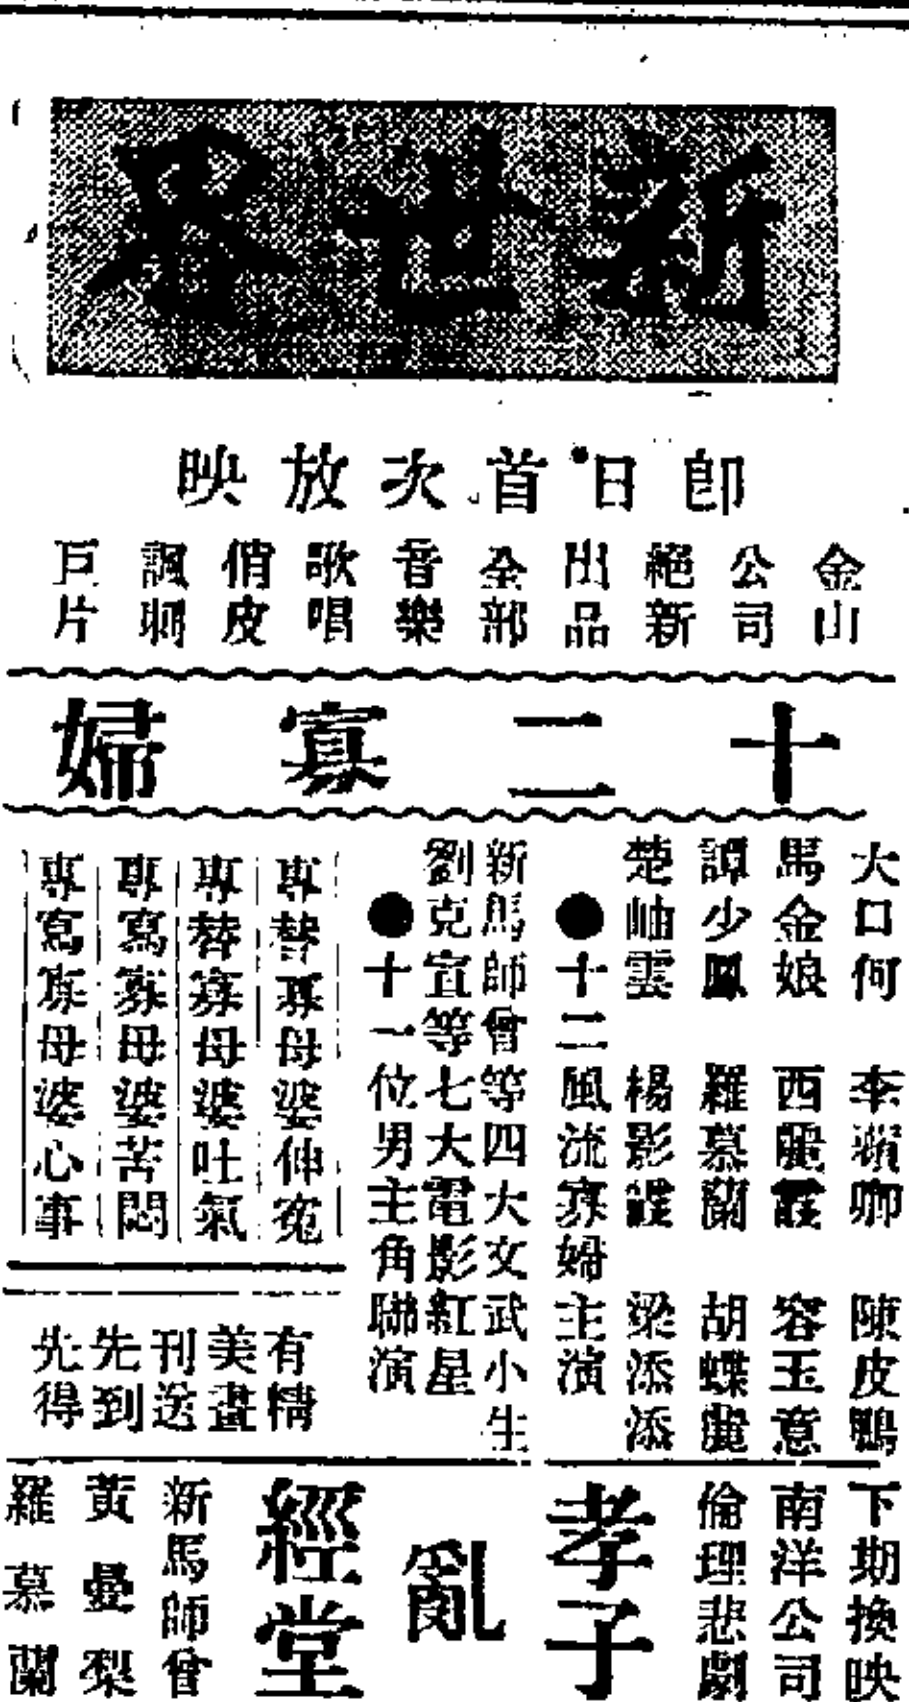 新世界
即日首次放映
金山公司絕新出品全部音樂歌唱俏皮諷刺巨片
十二寡婦
大口何 李瀨卿 陳皮鴨
馬金娘 西麗霞 容玉意
譚少鳳 羅慕蘭 胡蝶麗
楚岫雲 楊影霞 梁添添
●十二風流寡婦主演
新馬師曾等四大文武小生
劉克宣等七大電影紅星
●十一位男主角聯演
專替寡母婆伸寃
專替寡母婆吐氣
專寫寡母婆苦悶
專寫寡母婆心事
有精
美畫
刊送
先到
先得
下期換映
南洋公司
倫理悲劇
孝子
亂
經堂
新馬師曾
黃曼梨
羅慕蘭